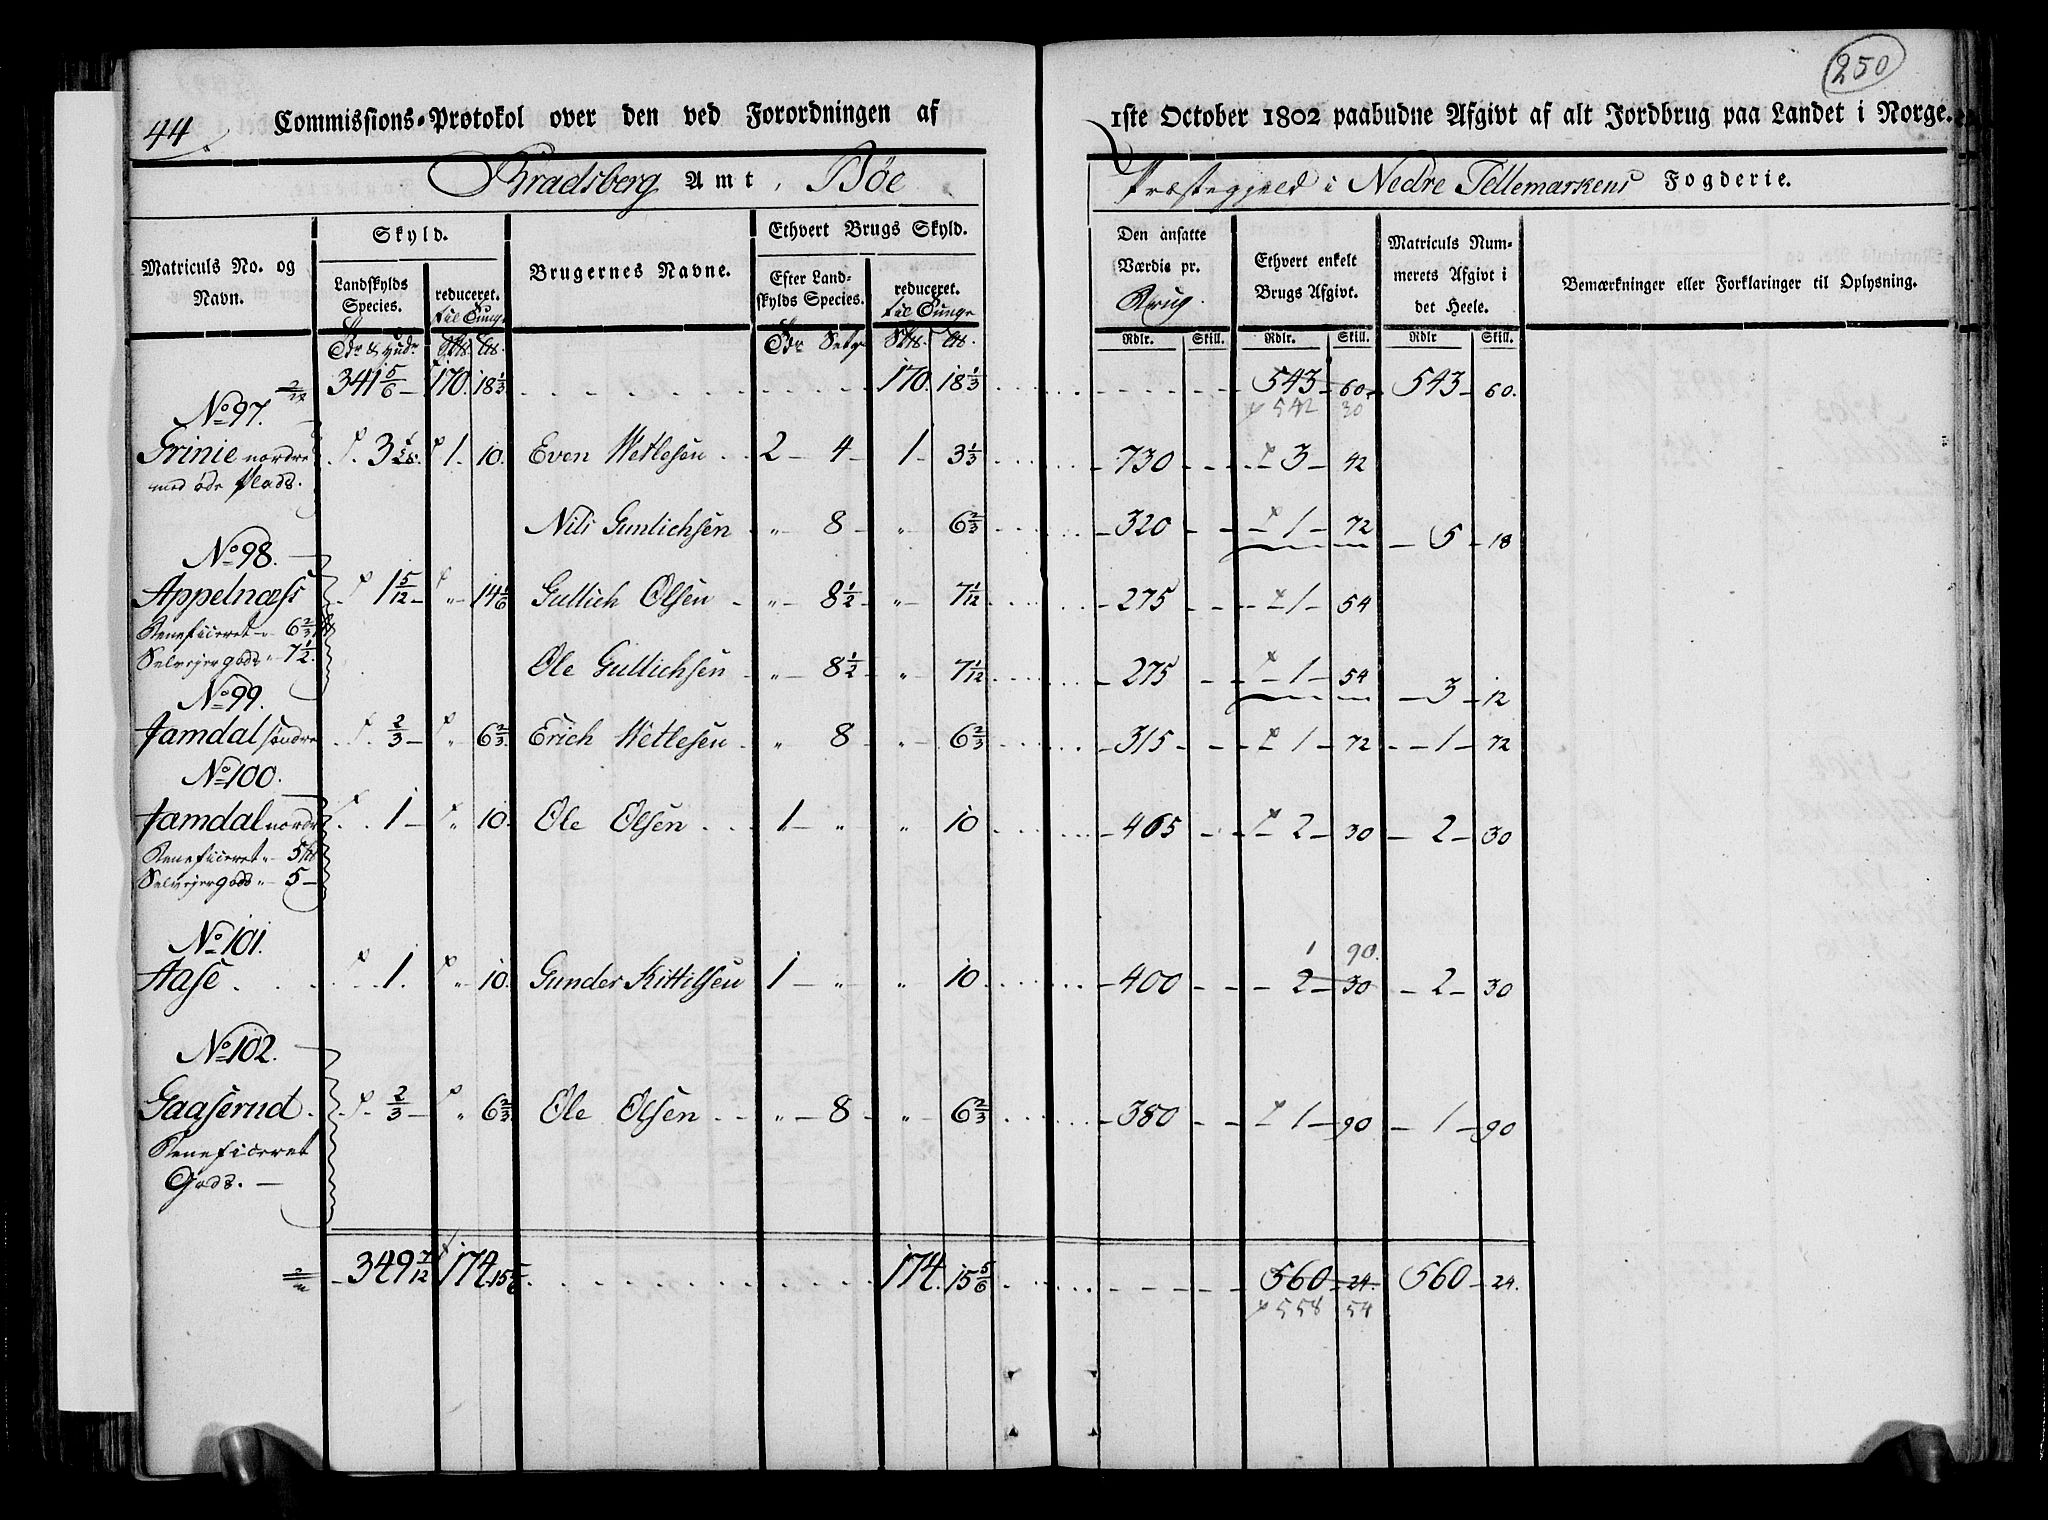 250
44. Commissions-Protokol over den ved Forordningen af 1ste October 1802 paabudne Afgivt af alt Jordbrug paa Landet i Norge.
Bradsberg Amt, Bøe Præstegjeld i Nedre Tellemarkens Fogderie.
Matriculs No. og Navn. Skyld. Landskylds Species. reduceret. til Tunge Brugernes Navne. Ethvert Brugs Skyld. Efter Landskylds Species. reduceret. til Tunge Den ansatte Værdie pr. Brug. Ethvert enkelt Brugs Afgivt. Matriculs Nummerets Afgivt i det Heele. Bemærkninger eller Forklaringer til Oplysning.
Rdlr. Skill. Rdlr. Skill. Rdlr Skill.
341 5/6 170. 18 1/3 170. 18 1/3 543 60 543 60.
542 30
No 97.
Grinie nordre 1. 10. Even Wetlesen 2 4 1 3 1/3 730 3 42
med øde Plads.
Nils Gunlichsen " 8 " 6 2/3 320 1 72 5 18
No 98.
Appelnæss 1 5/12 " 14 1/6 Gullich Olsen " 8 1/2 " 7 1/12 275 1 54
Beneficeret " 6 2/3
Selvejergods " 7 1/2.
Ole Gullichsen " 8 1/2 " 7 1/12 275 1 54 3 12
No 99.
Jamdal søndre 2/3 " 6 2/3. Erich Wetlesen " 8 " 6 2/3 315 1 72 1 72
No 100.
Jamdal nordre 1 " 10. Ole Olsen 1 " " 10 465 2 30 2 30
Beneficeret " 5
Selvejergods " 5
No 101. 1 90.
Aase 1. " 10. Gunder Kittilsen 1 " " 10 400 2 30 2 30
No 102.
Gaaserud 2/3 " 6 2/3 Ole Olsen " 8 " 6 2/3 380 1 90 1 90
Beneficeret
Gods.
349 7/12 174. 15 5/6 174. 15 5/6 560 24. 560 24.
558 54